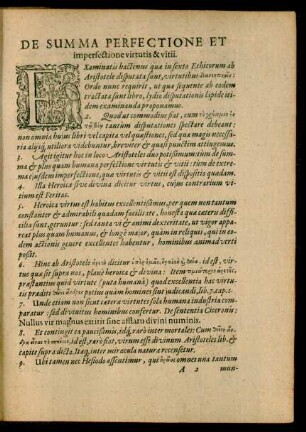 DE SUMMA PERFECTIONE ET
imperfectione virtutis & vitii.
EXaminatis hactenus quæ in sexto Ethicorum ab
Aristotele disputata sunt, virtutibus
Ordo nunc requirit, ut quæ sequente ab eodem
tractata sunt libro, Lydio disputationis lapide itidem
examinanda proponamus.
2. Quod ut commodius fiat, cum
tantum disputationes spectare debeant:
non omnes hujus libri vel capita vel quæstiones, sed quæ magis necessaria
aut utiliora videbuntur, breviter & quasi punctim attingemus.
3. Agit igitur hoc in loco Aristoteles duo potissimum vitiũ de summa
& plus quam humana perfectione virtutis & vitii: item de extrema
eademq́ imperfectione, quæ virtutis & vitii est dispositio quædam.
4. Illa Heroica sive divina dicitur virtus, cujus contrarium vitium
est Feritas.
5. Heroica virtus est habitus excellentissimus, per quem non tantum
constanter & admirabili quodam facilitate, honesta quæ cæteris difficilia
sunt, geruntur: sed tanta vi & animi dexteritate, ut vigor appareat
plus quam humanus, & longè major, quàm in reliquis, qui in eodem
actionis genere excellentes habentur, hominibus animadverti
possit.
6. Hinc ab Aristotele dicitur id est, virtus
quæ sit supra nos, planè heroica & divina: Item
præstantior quàm virtus (puta humanâ) quod excellentia hac virtutis
prædits potius quàm homines sint judicandi, lib.7.cap.1.
7. Unde etiam non sicut cætera virtutes sola humana industria comparatur:
sed divinitus hominibus confertur. De sententia Ciceronis:
Nullus vir magnus extitit sine afflatu divini numinis.
8. Et contingit in paucissimis, idq́, rarò inter mortales: Cum
id est, rarò fiat, virum esse divinum Aristoteles lib. &
capite supra dicto. Itaq́, inter miracula naturæ recensetur.
9. Ubi tamen nec Hesiodo assentimur, qui omnes una tantum
A 2 mun-